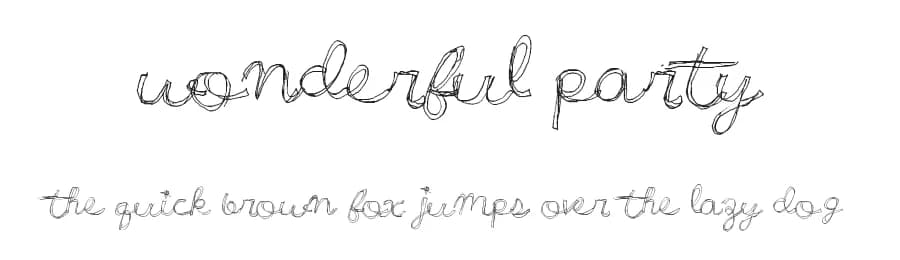 wonderful party
the quick brown fox jumps over the lazy dog